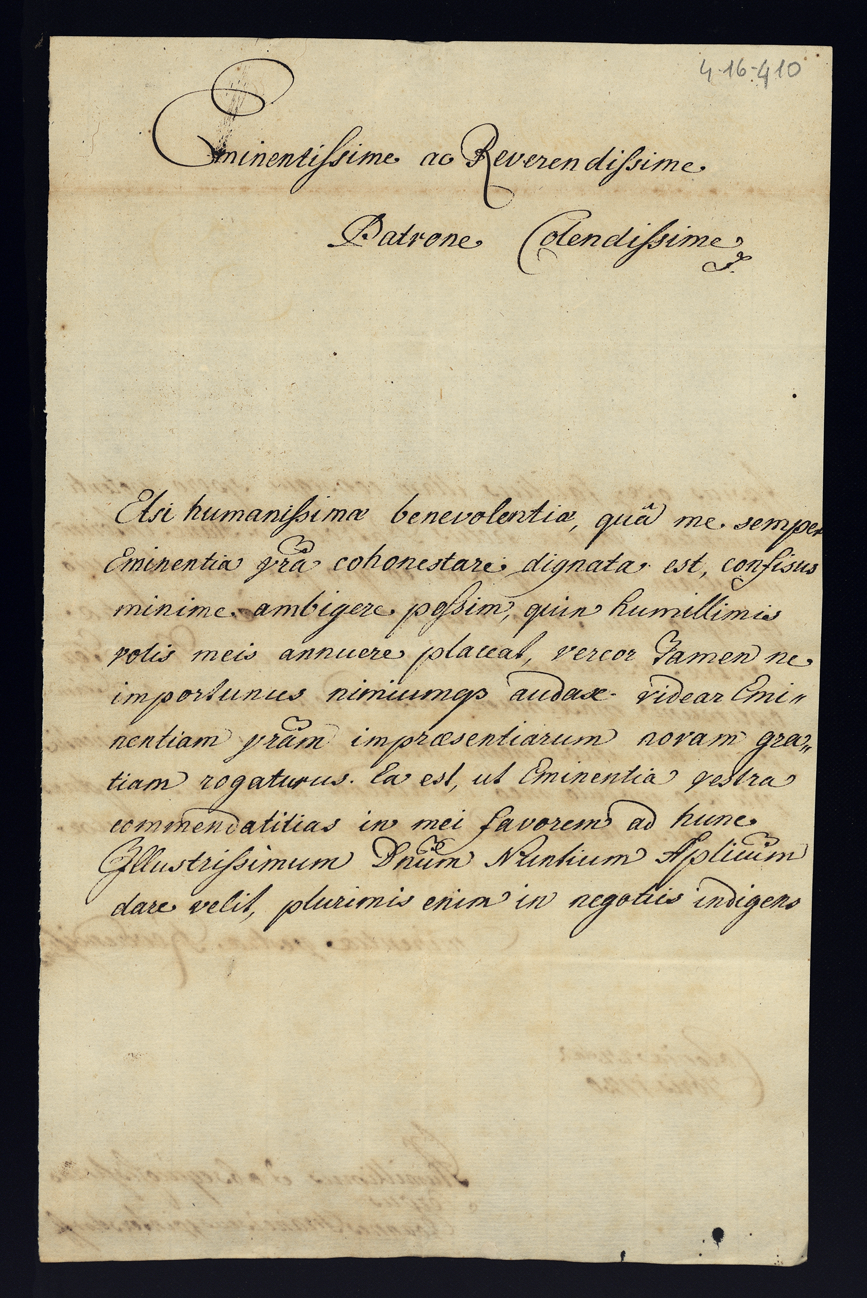 4-16-410
Eminentissime ac Reverendissime
Patrone Colendissime
Etsi humanissimæ benevolentiæ, quâ me semper
Eminentia vrã cohonestare dignata est, confisus
minime ambigere possim, quin humillimis
votis meis annuere placeat, vereor tamen ne
importunus nimiumqs audax videar Emi„
nentiam vrãm impræsentiarum novam gra„
tiam rogaturus. Ea est, ut Eminentia vestra
commendatitias in mei favorem ad hunc
Illustrissimum Dnũm Nuntium Aplicũm
dare velit, plurimis enim in negotiis indigens